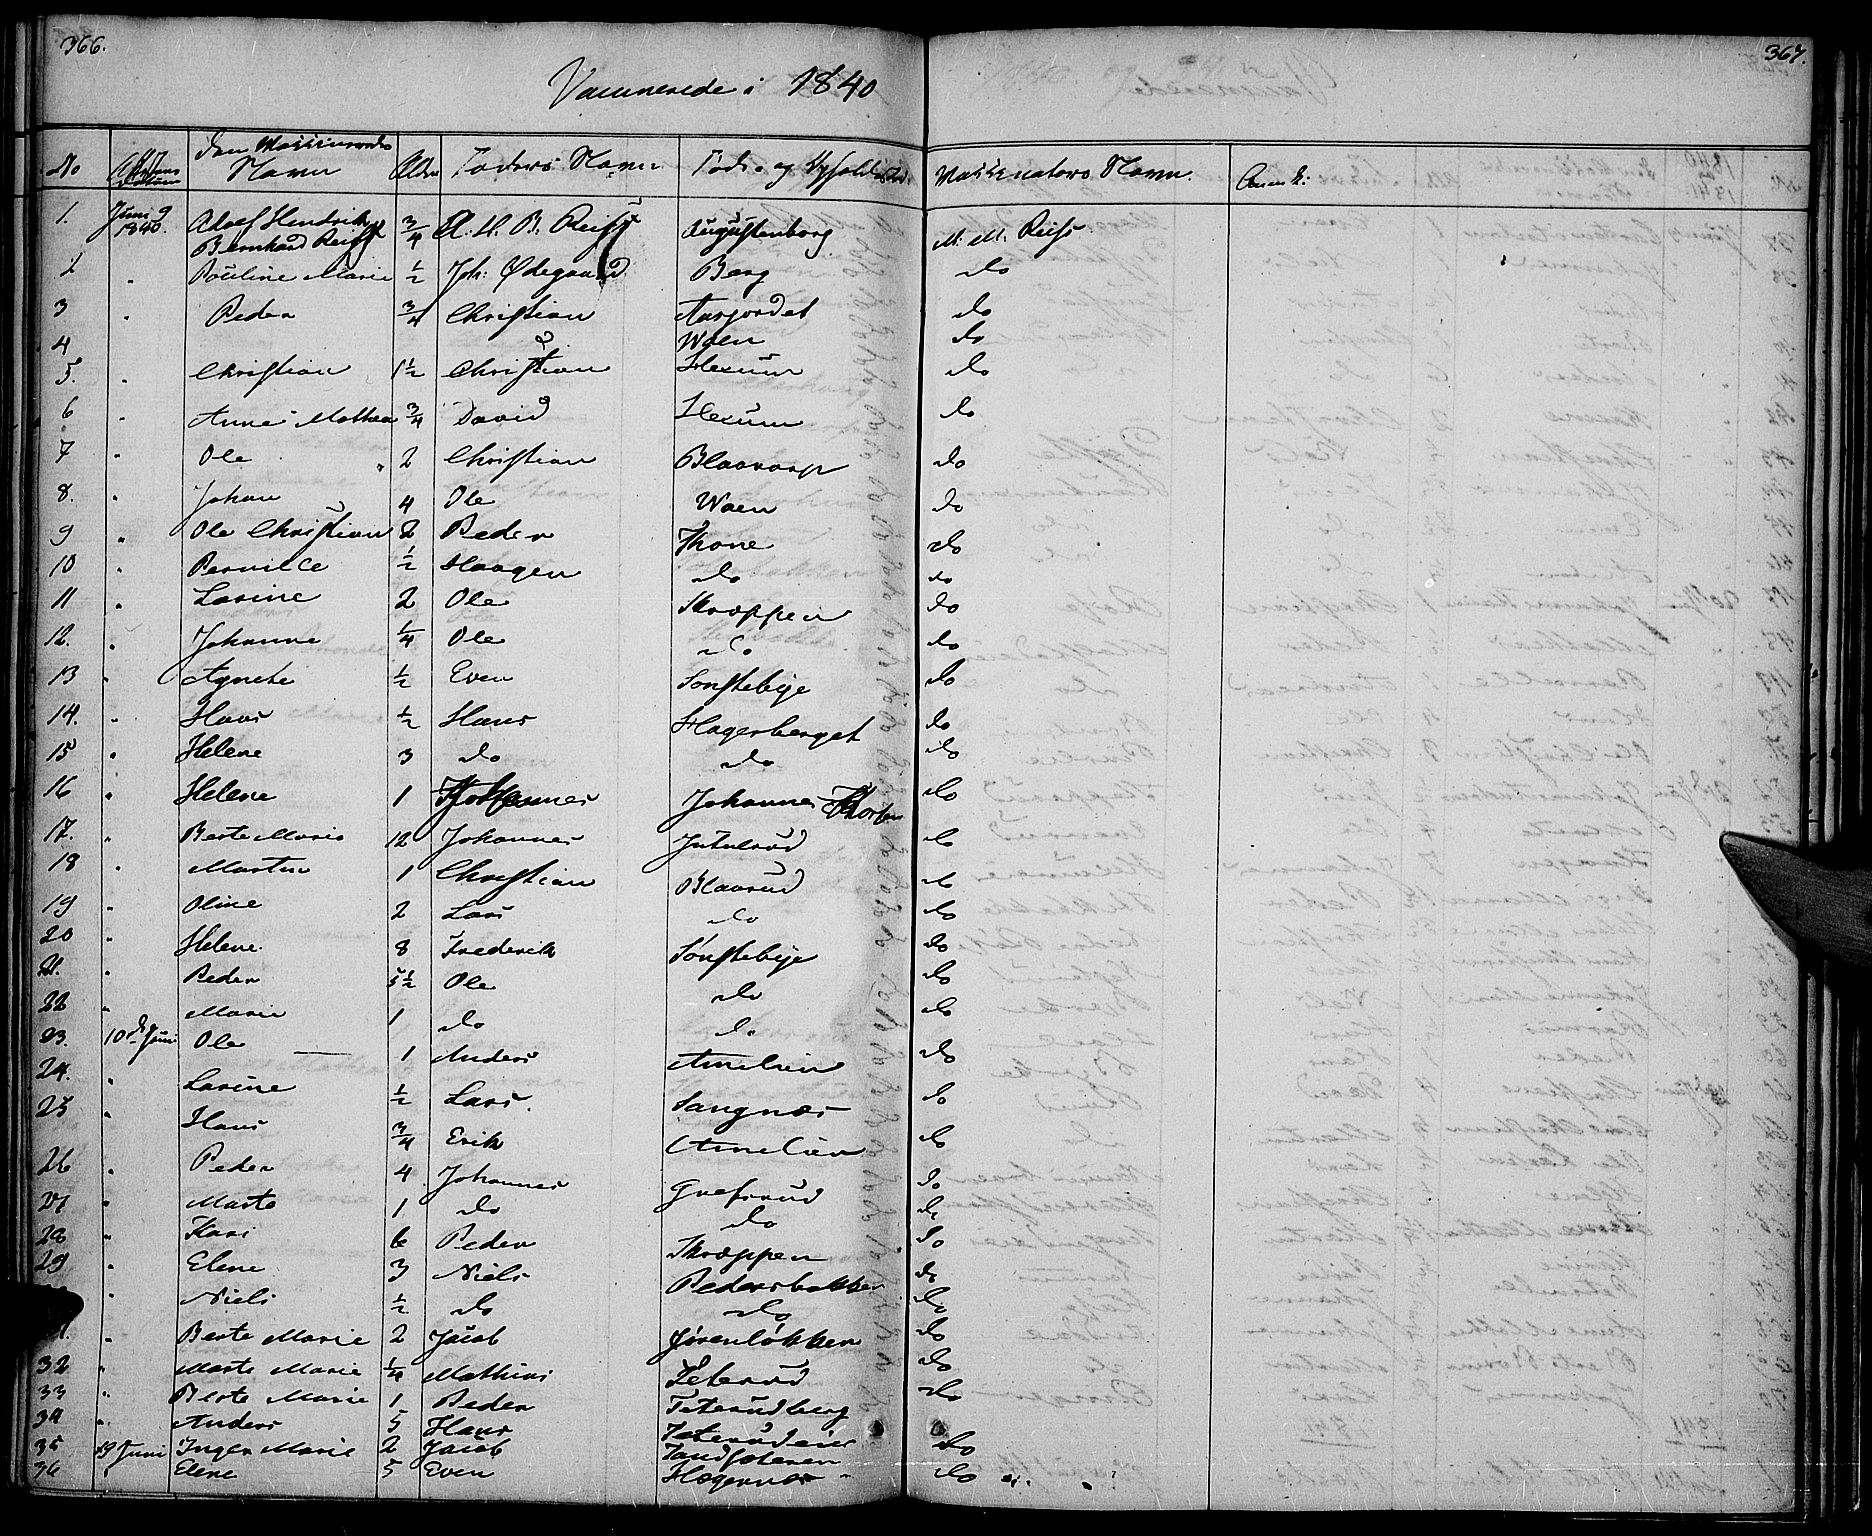 366.
367.
Vaccinerede i 1840
No Attestens Datum Den Vaccineredes Navn Alder Faders Navn Føde- og Opholdssted. Vaccinators Navn. Anm:
1. Juni 9 1840. Adolf Hendrik Bernhard Reiss 3/4 A. H. B. Reiss Augustenborg M. M. Reiss
2 " Pouline Marie 1/2 Joh: Ødegaard Berg do
3 " Peder 3/4 Christian Aasjordet do
4 Woen do
5. " Christian 1 1/2 Christian Hexum do
6 " Anne Mathea 3/4 David Hexum do
7 " Ole 2 Christian Blaavarp do
8. " Johan 4 Ole Woen do
9 " Ole Christian 2 Peder Thone do
10 " Pernille 1/2 Haagen do do
11 " Larine 2 Ole Skroppen do
12. " Johanne 1/4 Ole do do
13 " Agnete 1/2 Even Sønstebye do
14. " Hans 1/2 Hans Hagerberget do
15 " Helene 3 do do do
16 " Helene 1 Johannes do
17. " Berte Marie 12 Johannes Jutulrud do
18 " Martin 1 Christian Blaarud do
19 " Oline 2 Lars do do
20 " Helene 8 Frederik Sønstebye do
21. " Peder 5 1/2 Ole do do
22 " Marie 1 do do do
23. 10de Juni Ole 1 Anders Amelien do
24. " Larine 1/2 Lars Sangnæs do
25 " Hans 3/4 Erik Amelien do
26 " Peder 4 Johannes Grefsrud do
27 " Marte 1 do do do
28 " Kari 6 Peder Skroppen do
29 " Elene 3 Niels Pedersbakken do
" Niels 1/2 do do do
" Berte Marie 2 Jacob Jørenløkken do
32 " Marte Marie 1/4 Mathias Feterud do
33 " Berte Marie 1 Peder Feterudberg do
34 " Anders 5 Hans Feterudeie
35 19 Juni Inger Marie 2 Jacob do
36 " Elene 5 Even Hagernæs do